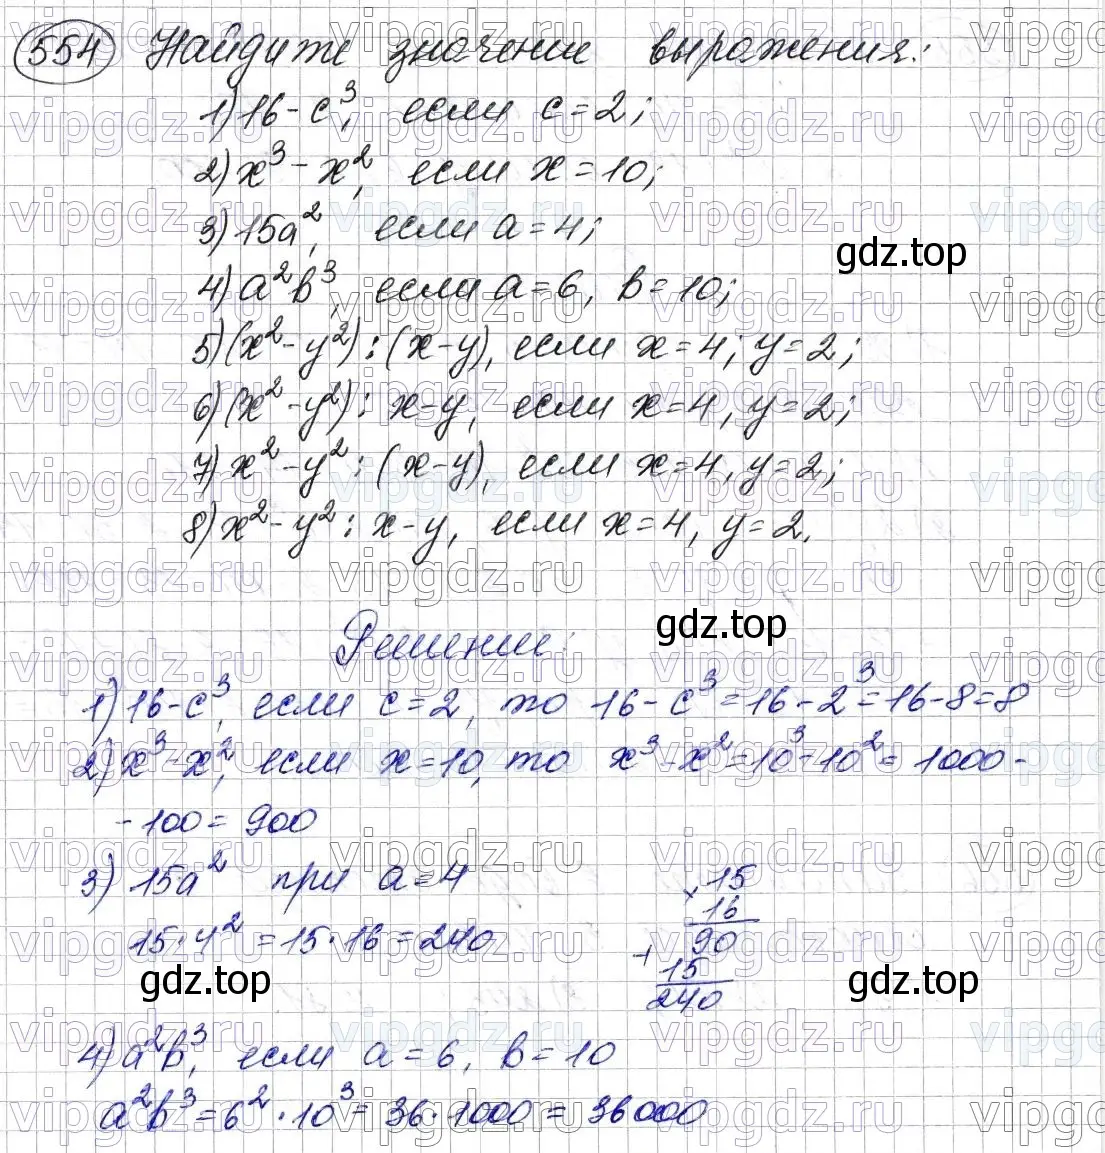 554 Найдите значение выражения:
1) 16-c³, если c=2;
2) x³-x², если x=10;
3) 15a², если a=4;
4) a²b³, если a=6, b=10;
5) (x²-y²):(x-y), если x=4; y=2;
6) (x²-y²): x-y, если x=4, y=2;
7) x²-y²:(x-y), если x=4, y=2;
8) x²-y²: x-y, если x=4, y=2.
Решение:
1) 16-c³, если c=2, то 16-c³=16-2³=16-8=8
2) x³-x², если x=10, то x³-x²=10³-10²=1000-
-100=900
3) 15a² при a=4
15·4²=15·16=240
×15
16
90
+
15
240
4) a²b³, если a=6, b=10
a²b³=6²·10³=36·1000=36000
gdz.top
gdz.top
gdz.top
gdz.top
vipgdz.ru